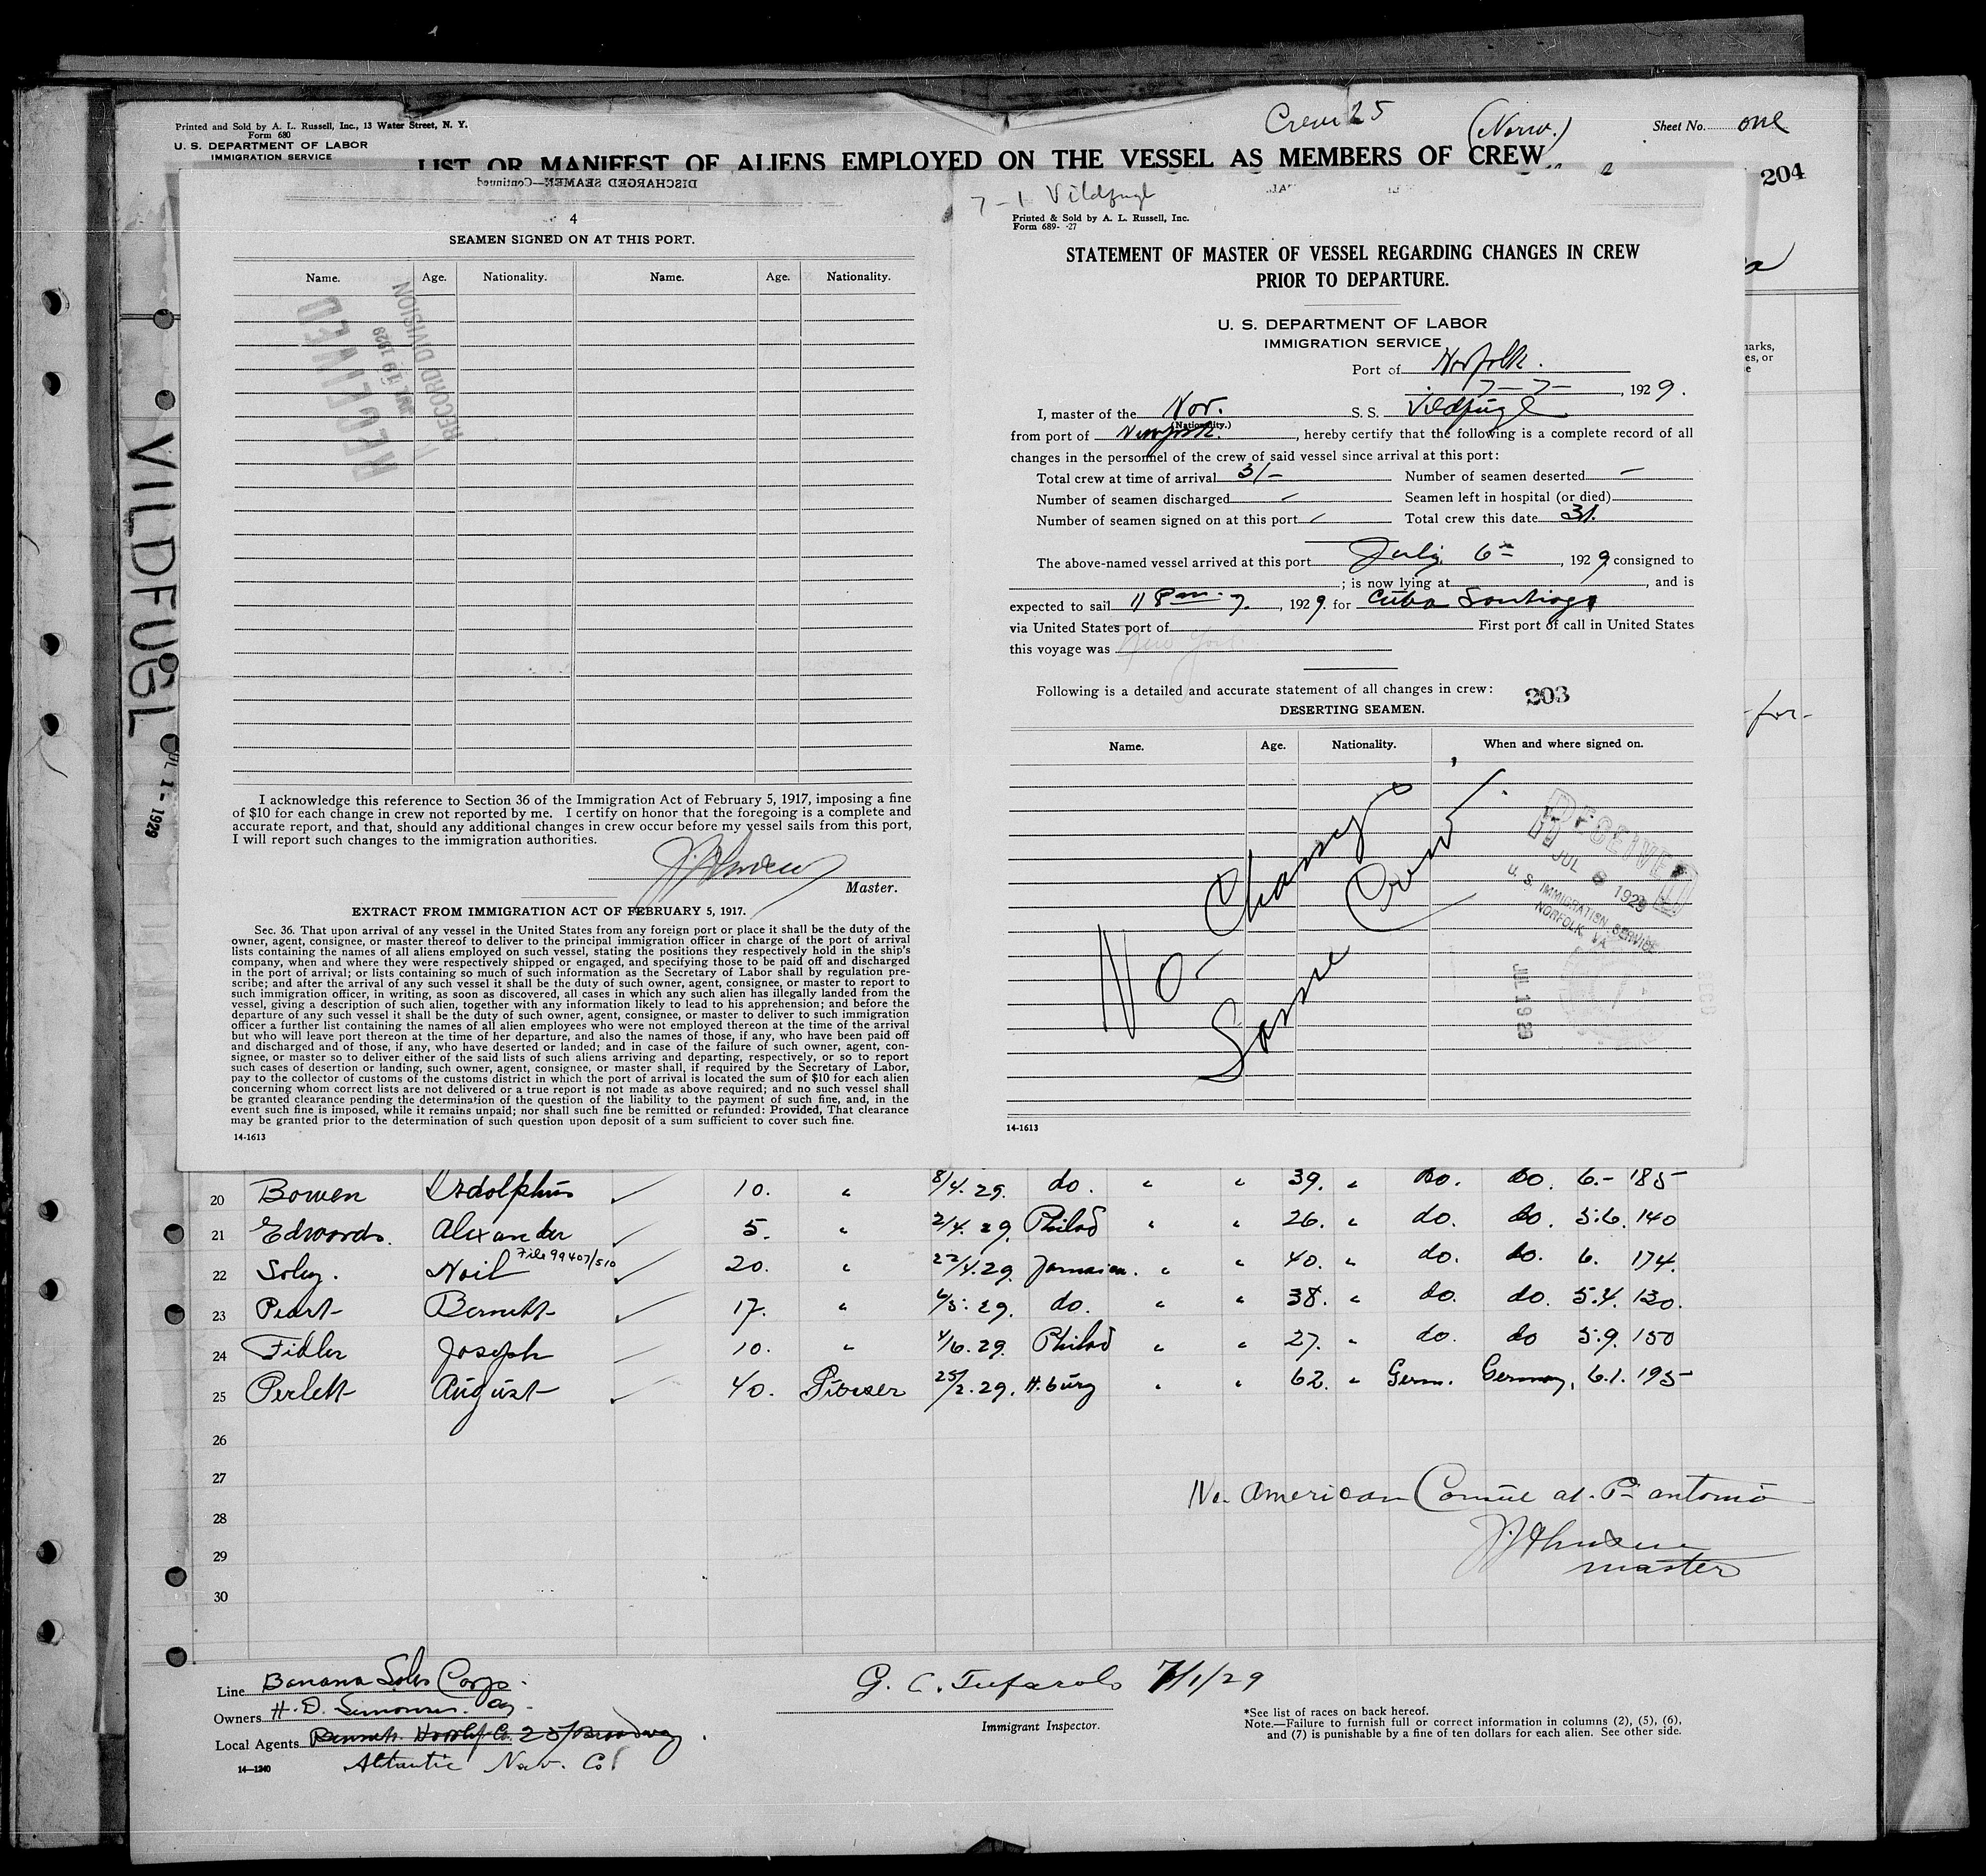 Crew 25 (Norw.) Sheet No. one
Printed and Sold by A. L. Russell, Inc., 13 Water Street, N. Y.
Form 680
U. S. DEPARTMENT OF LABOR
IMMIGRATION SERVICE
LIST OR MANIFEST OF ALIENS EMPLOYED ON THE VESSEL AS MEMBERS OF CREW
204
VILDFUGL
JUL 1 - 1929
DISCHARGED SEAMEN—Continued
4
SEAMEN SIGNED ON AT THIS PORT.
Name. Age. Nationality. Name. Age. Nationality.
RECEIVED
JUL 19 1929
RECORD DIVISION
I acknowledge this reference to Section 36 of the Immigration Act of February 5, 1917, imposing a fine
of $10 for each change in crew not reported by me. I certify on honor that the foregoing is a complete and
accurate report, and that, should any additional changes in crew occur before my vessel sails from this port,
I will report such changes to the immigration authorities.
Master.
EXTRACT FROM IMMIGRATION ACT OF FEBRUARY 5, 1917.
Sec. 36. That upon arrival of any vessel in the United States from any foreign port or place it shall be the duty of the
owner, agent, consignee, or master thereof to deliver to the principal immigration officer in charge of the port of arrival
lists containing the names of all aliens employed on such vessel, stating the positions they respectively hold in the ship's
company, when and where they were respectively shipped or engaged, and specifying those to be paid off and discharged
in the port of arrival; or lists containing so much of such information as the Secretary of Labor shall by regulation pre-
scribe; and after the arrival of any such vessel it shall be the duty of such owner, agent, consignee, or master to report to
such immigration officer, in writing, as soon as discovered, all cases in which any such alien has illegally landed from the
vessel, giving a description of such alien, together with any information likely to lead to his apprehension; and before the
departure of any such vessel it shall be the duty of such owner, agent, consignee, or master to deliver to such immigration
officer a further list containing the names of all alien employees who were not employed thereon at the time of the arrival
but who will leave port thereon at the time of her departure, and also the names of those, if any, who have been paid off
and discharged and of those, if any, who have deserted or landed; and in case of the failure of such owner, agent, con-
signee, or master so to deliver either of the said lists of such aliens arriving and departing, respectively, or so to report
such cases of desertion or landing, such owner, agent, consignee, or master shall, if required by the Secretary of Labor,
pay to the collector of customs of the customs district in which the port of arrival is located the sum of $10 for each alien
concerning whom correct lists are not delivered or a true report is not made as above required; and no such vessel shall
be granted clearance pending the determination of the question of the liability to the payment of such fine, and, in the
event such fine is imposed, while it remains unpaid; nor shall such fine be remitted or refunded: Provided, That clearance
may be granted prior to the determination of such question upon deposit of a sum sufficient to cover such fine.
14-1613
7-1 Vildfugl
Printed & Sold by A. L. Russell, Inc.
Form 689- -27
STATEMENT OF MASTER OF VESSEL REGARDING CHANGES IN CREW
PRIOR TO DEPARTURE.
U. S. DEPARTMENT OF LABOR
IMMIGRATION SERVICE
Port of Norfolk.
7-7-, 1929.
I, master of the Nor. S. S. Vildfugl
(Nationality.)
from port of New York., hereby certify that the following is a complete record of all
changes in the personnel of the crew of said vessel since arrival at this port:
Total crew at time of arrival 31- Number of seamen deserted -
Number of seamen discharged - Seamen left in hospital (or died)
Number of seamen signed on at this port - Total crew this date 31.
The above-named vessel arrived at this port July 6th, 1929 consigned to
; is now lying at , and is
expected to sail 11 Pm. 7., 1929. for Cuba Santiago
via United States port of First port of call in United States
this voyage was New York.
Following is a detailed and accurate statement of all changes in crew: 203
DESERTING SEAMEN.
Name. Age. Nationality. When and where signed on.
No Change
Same Crew.
RECEIVED
JUL 6 1929
U. S. IMMIGRATION SERVICE
NORFOLK, VA.
JUL 19 29
14-1613
arks,
es, or
e
-for-
20 Bowen Adolphus 10. " 8/4.29. do. " " 39. " do. do. 6.- 185
21 Edwards. Alexander 5. " 2/4.29. Philad " " 26. " do. do. 5.6. 140
22 Soley. Noil File 99407/510 20. " 22/4.29. Jamaica. " " 40. " do. do. 6. 174.
23 Peart Bernett 17. " 6/5.29. do. " " 38. " do. do. 5.4. 130.
24 Fidler Joseph 10. " 4/6.29. Philad " " 27. " do. do 5.9. 150
25 Perlett August 40. 25/2.29. H.burg " " 62. " Germ. Germany, 6.1. 195
26
27
28
29
30
No American Consul at. Pt antonio
master
Line Banana Sales Corp.
Owners H. D. Simonsen.
Local Agents 25/Broadway.
Atlantic Nav. Co.
14—1240
G. C. Tufarolo 7/1/29
Immigrant Inspector.
*See list of races on back hereof.
Note.—Failure to furnish full or correct information in columns (2), (5), (6),
and (7) is punishable by a fine of ten dollars for each alien. See other side.